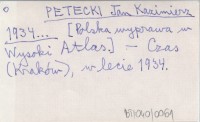 PETECKI Jan Kazimierz
1934... [Polska wyprawa w
Wysoki Atlas.] — Czas
(Kraków), w lecie 1934.